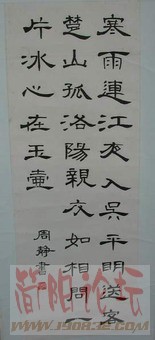 寒雨連江夜入吳平明送客
楚山孤洛陽親友如相問一
片冰心在玉壺
周靜書
简阳论坛